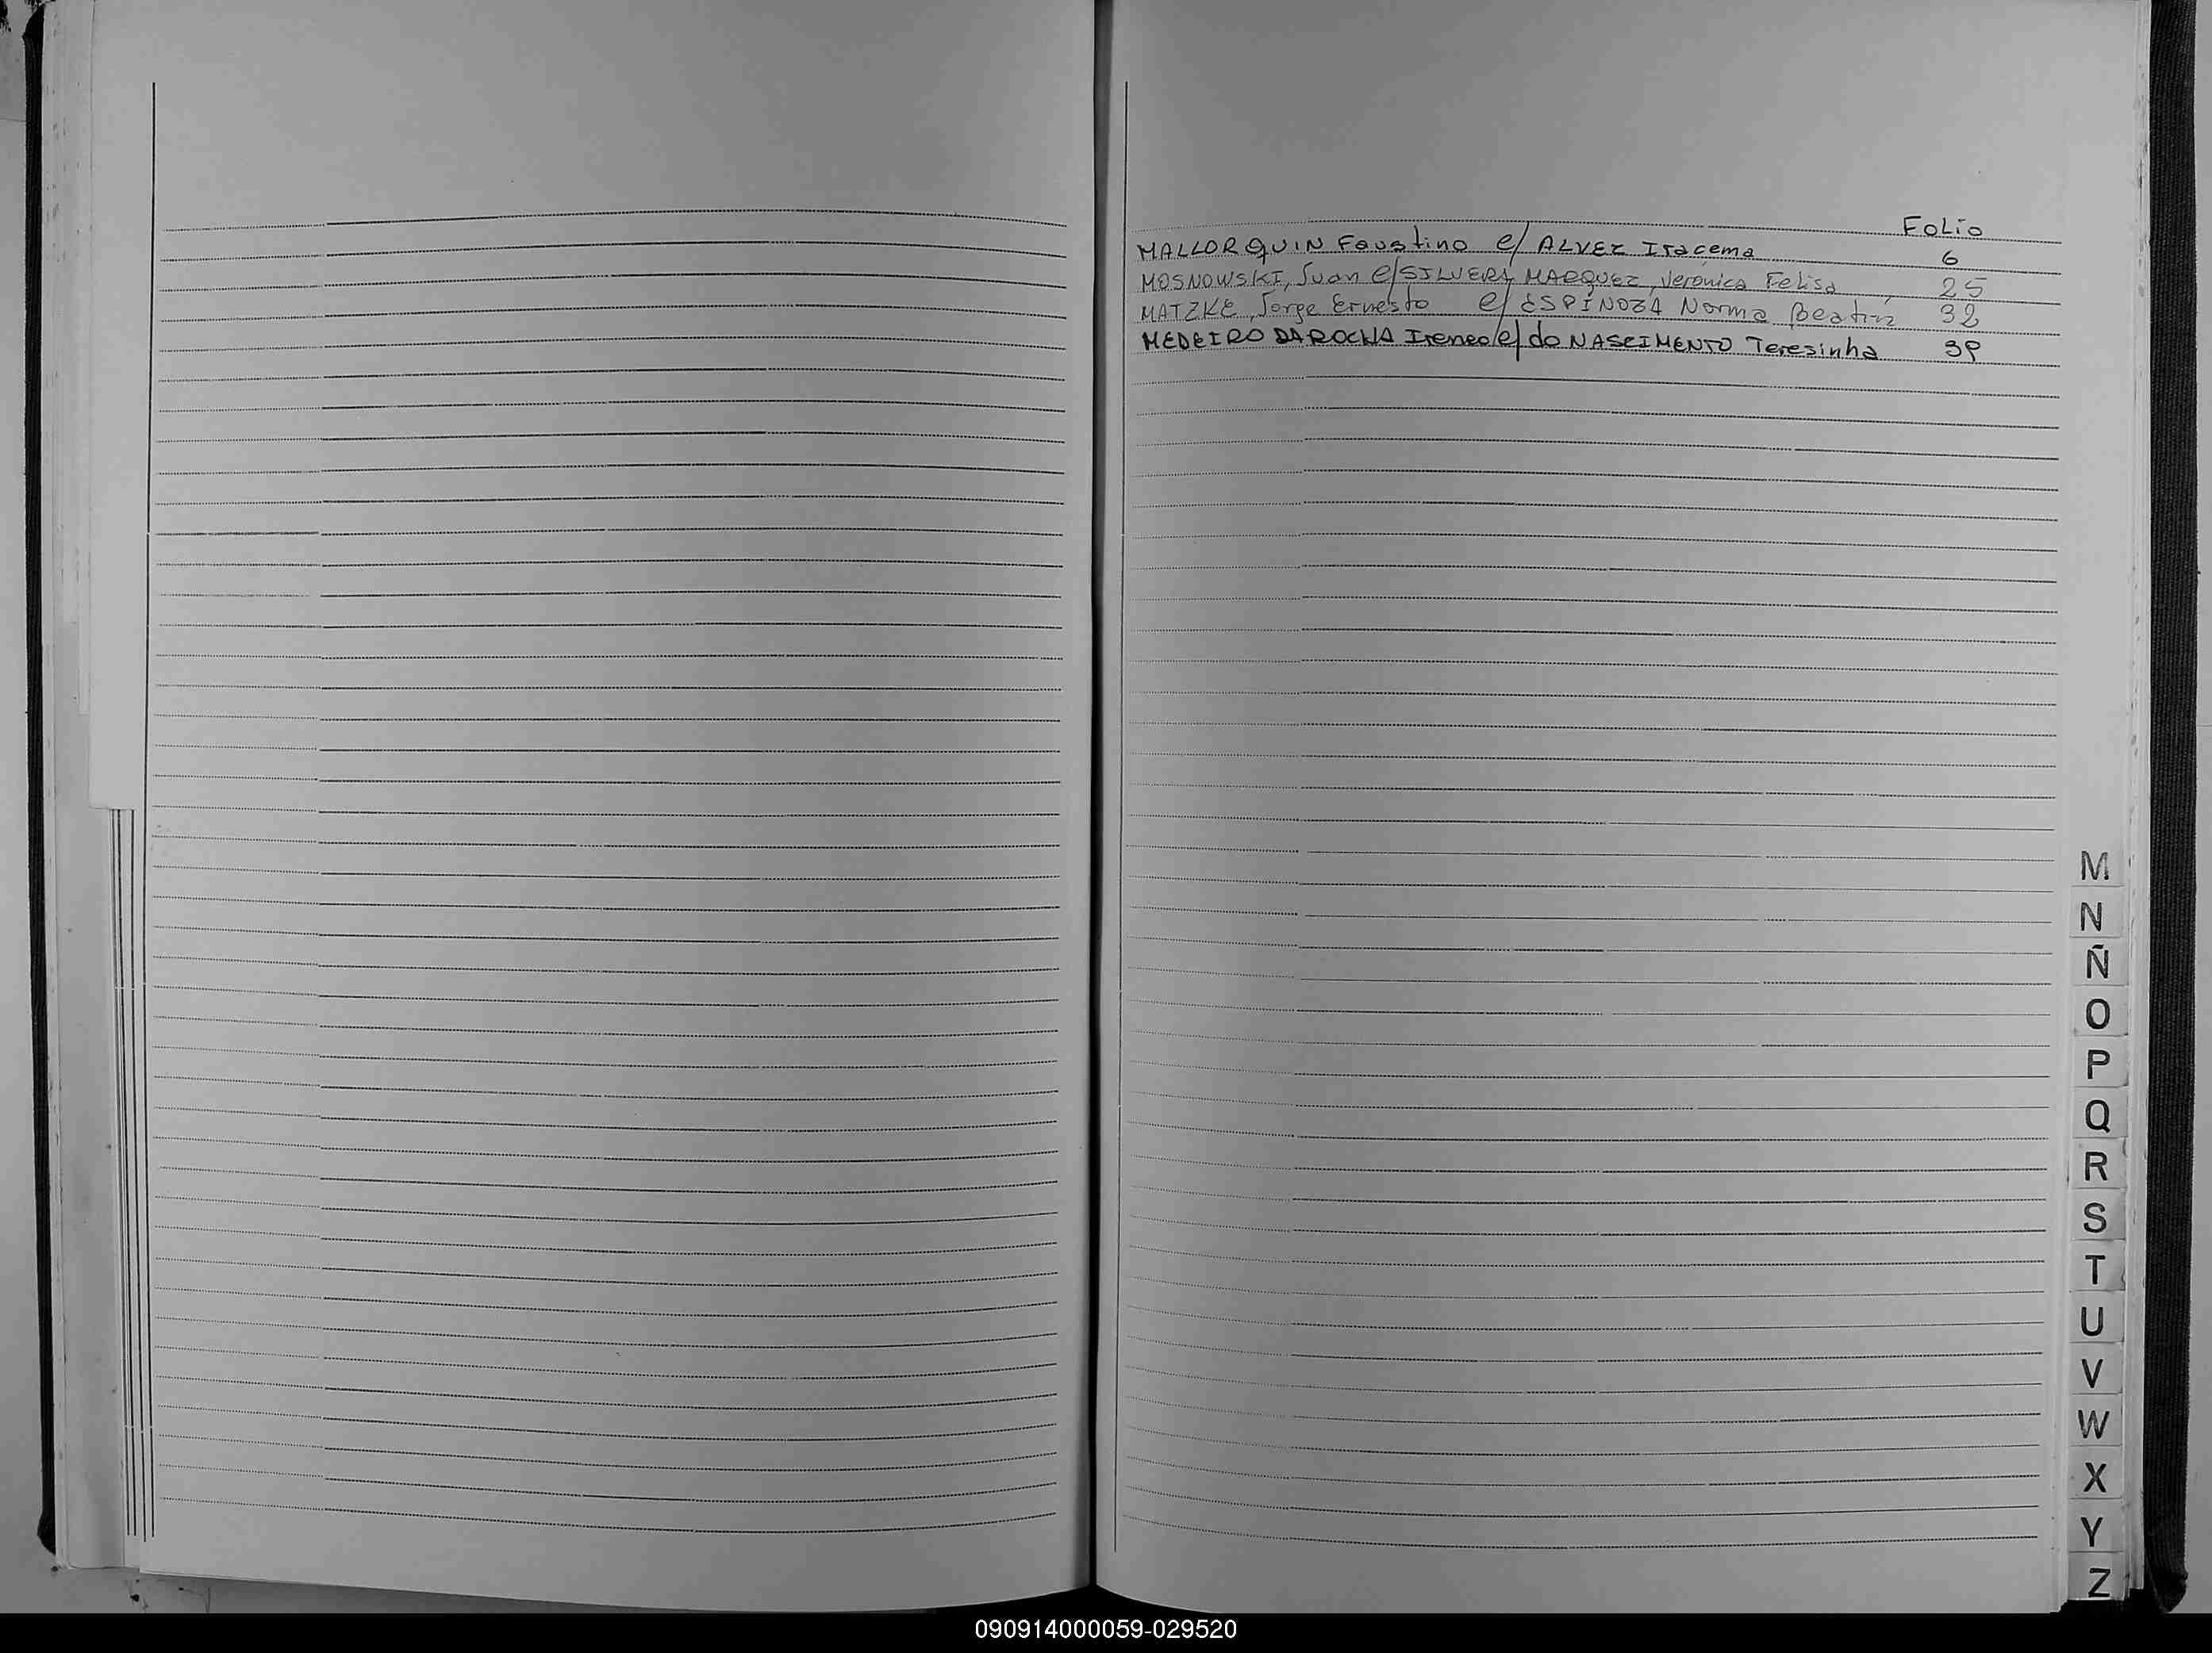 FoLio
MALLORQUIN Faustino c/ ALVEZ Iracema 6
MOSNOWSKI, Juan c/ SILVERA MARQUEZ, Veronica Felisa 25
MATZKE, Jorge Ernesto c/ ESPÍNOZA Norma Beatriz 32
MEDEIRO DA ROCHA Ireneo c/ do NASCIMENTO Teresinha 39
M
N
Ñ
O
P
Q
R
S
T
U
V
W
X
Y
Z
090914000059-029520